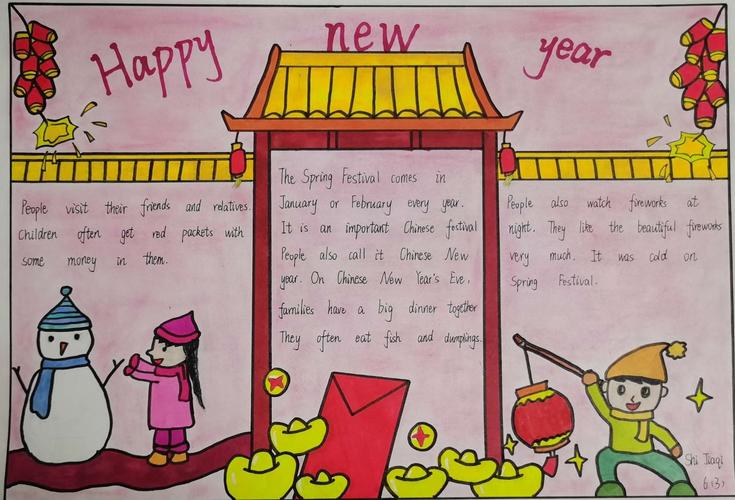 Happy new year
People visit their friends and relatives.
Children often get red packets with
some money in them.
The Spring Festival comes in
January or February every year.
It is an important Chinese festival
People also call it Chinese New
year. On Chinese New Year's Eve,
families have a big dinner together
They often eat fish and dumplings.
People also watch fireworks at
night. They like the beautiful fireworks
very much. It was cold on
Spring Festival.
Shi Jiaqi
6(3)